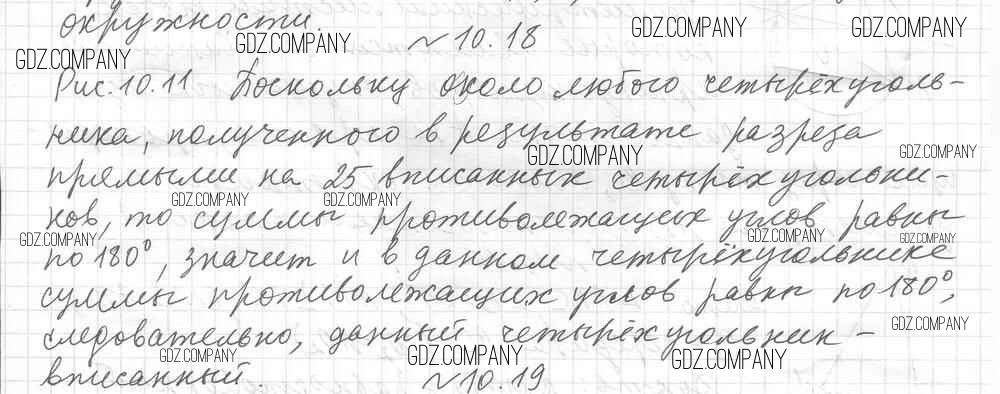 окружности.
GDZ.COMPANY GDZ.COMPANY GDZ.COMPANY GDZ.COMPANY
~ 10.18
Рис. 10.11 Поскольку около любого четырёхуголь-
ника, полученного в результате разреза
GDZ.COMPANY GDZ.COMPANY
прямыми на 25 вписанных четырёхугольни-
GDZ.COMPANY GDZ.COMPANY
ков, то суммы противолежащих углов равны
GDZ.COMPANY GDZ.COMPANY GDZ.COMPANY
по 180°, значит и в данном четырёхугольнике
суммы противолежащих углов равны по 180°,
GDZ.COMPANY
следовательно, данный четырёхугольник –
GDZ.COMPANY GDZ.COMPANY GDZ.COMPANY
вписанный.
~ 10.19